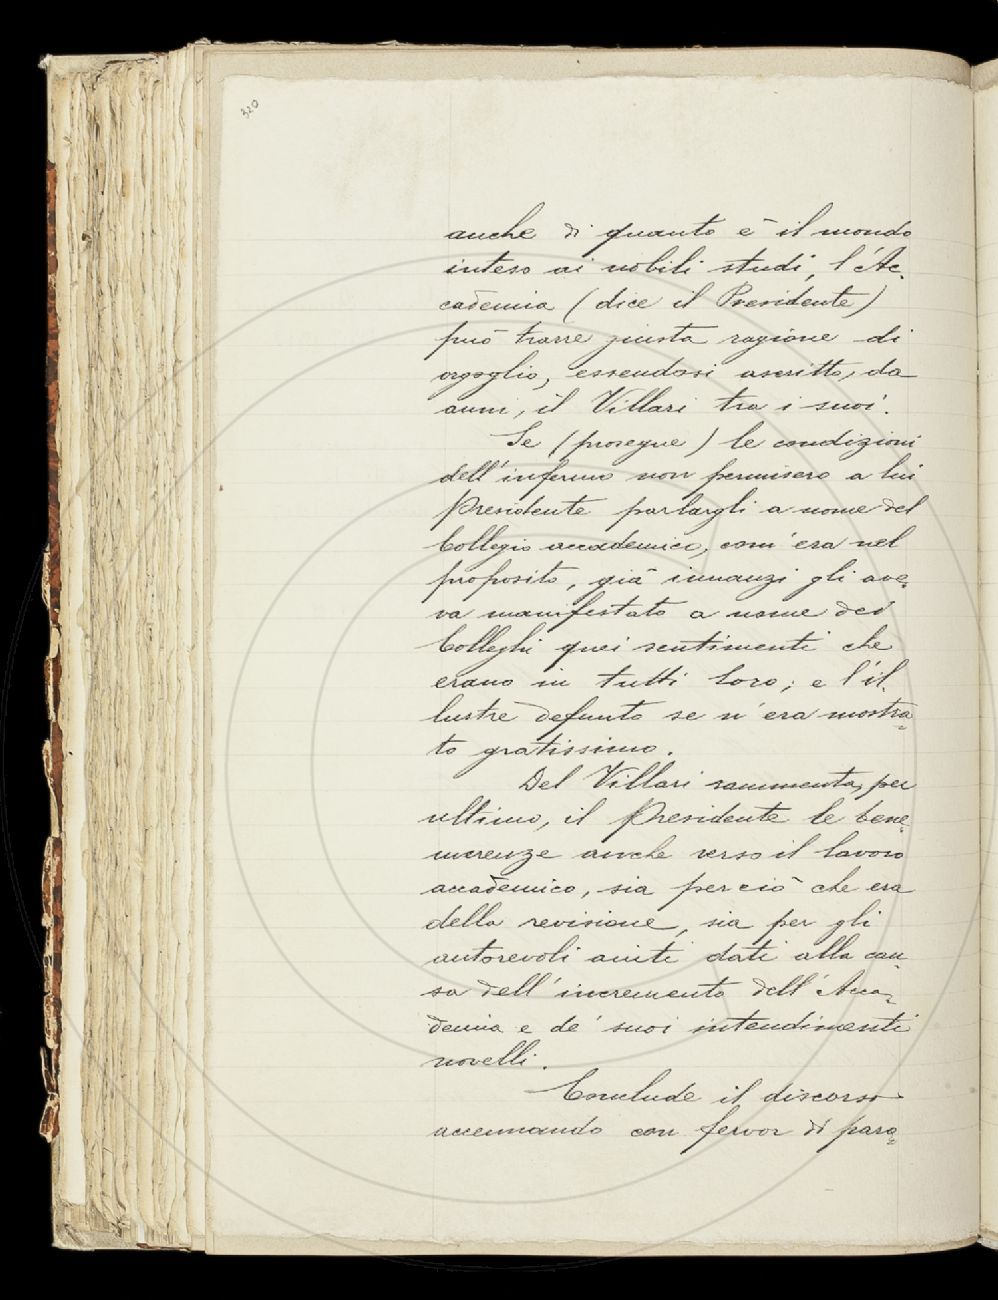 320
anche di quanto è il mondo
inteso ai nobili studi, l'Ac-
cademia (dice il Presidente)
può trarre giusta ragione di
orgoglio, essendosi ascritto, da
anni, il Villari tra i suoi.
Se (prosegue) le condizioni
dell'infermo non permisero a lui
Presidente parlargli a nome del
Collegio accademico, com'era nel
proposito, già innanzi gli ave-
va manifestato a nome dei
Colleghi quei sentimenti che
erano in tutti loro; e l'il-
lustre defunto se n'era mostra-
to gratissimo.
Del Villari rammenta, per
ultimo, il Presidente le bene-
merenze anche verso il lavoro
accademico, sia per ciò che era
della revisione, sia per gli
autorevoli aiuti dati alla cau-
sa dell'incremento dell'Acca-
demia e de' suoi intendimenti
novelli.
Conclude il discorso
accennando con fervor di paro-